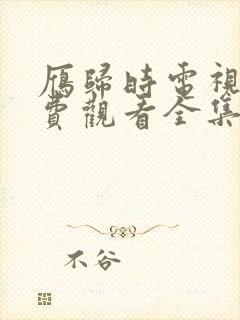 雁歸時電視
費觀看全集
不谷